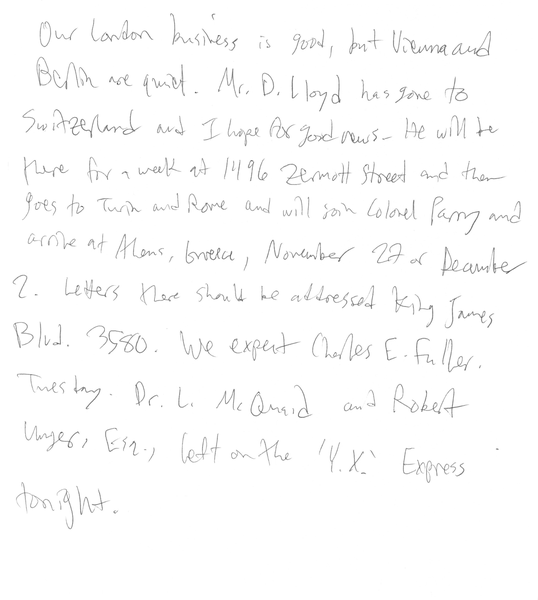 Our London business is good, but Vienna and
Berlin are quiet. Mr. D. Lloyd has gone to
Switzerland and I hope for good news. He will be
there for a week at 1496 Zermott Street and then
goes to Turin and Rome and will join Colonel Parry and
arrive at Athens, Greece, November 27 or December
2. Letters there should be addressed King James
Blvd. 3580. We expect Charles E. Fuller.
Tuesday. Dr. L. McQuaid and Robert
Unger, Esq., left on the 'Y.X.' Express
tonight.